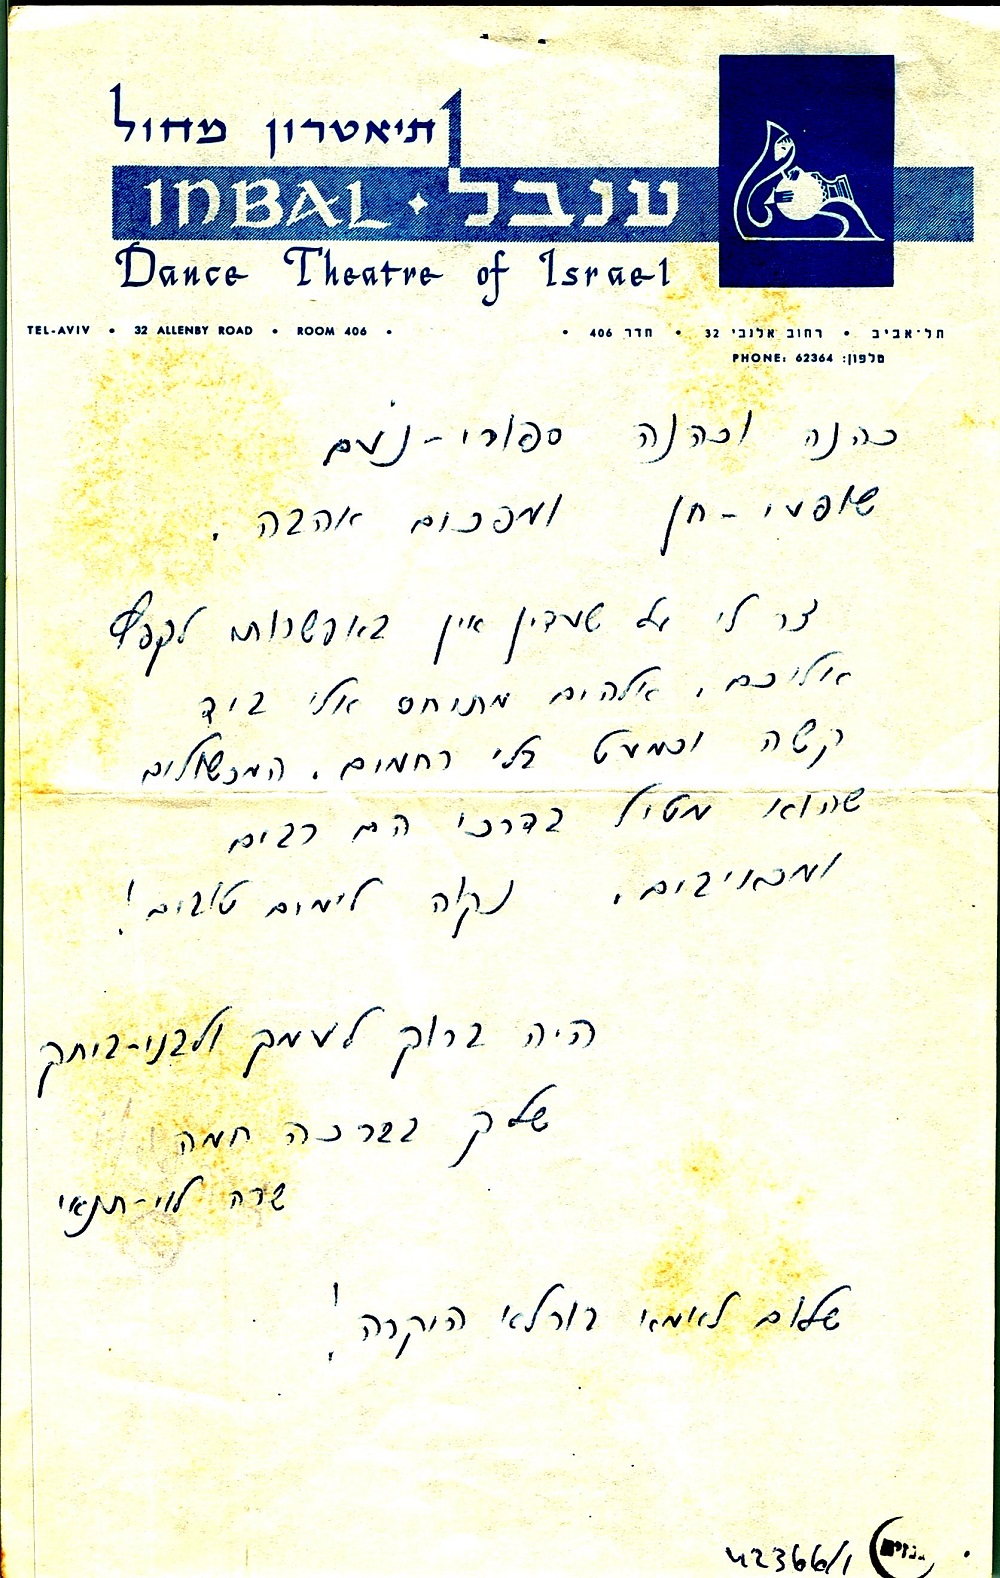 תיאטרון מחול
INBAL ✦ ענבל
Dance Theatre of Israel
TEL-AVIV • 32 ALLENBY ROAD • ROOM 406 •
תל־אביב • רחוב אלנבי 32 • חדר 406 •
PHONE: 62364 טלפון:
כהנה וכהנה ספורי-נעם
שופעי-חן ומפכים אהבה.
צר לי על שעדין אין באפשרותי לקפץ
אליכם. אלהים מתיחס אלי ביד
קשה וכמעט בלי רחמים. המכשולים
שהוא מטיל בדרכי הם רבים
ומכאיבים. נקוה לימים טובים!
היה ברוך לעמך ולבני-ביתך
שלך בברכה חמה
שרה לוי-תנאי
שלום לאמא רורלא היקרה!
גנזים
42366/1